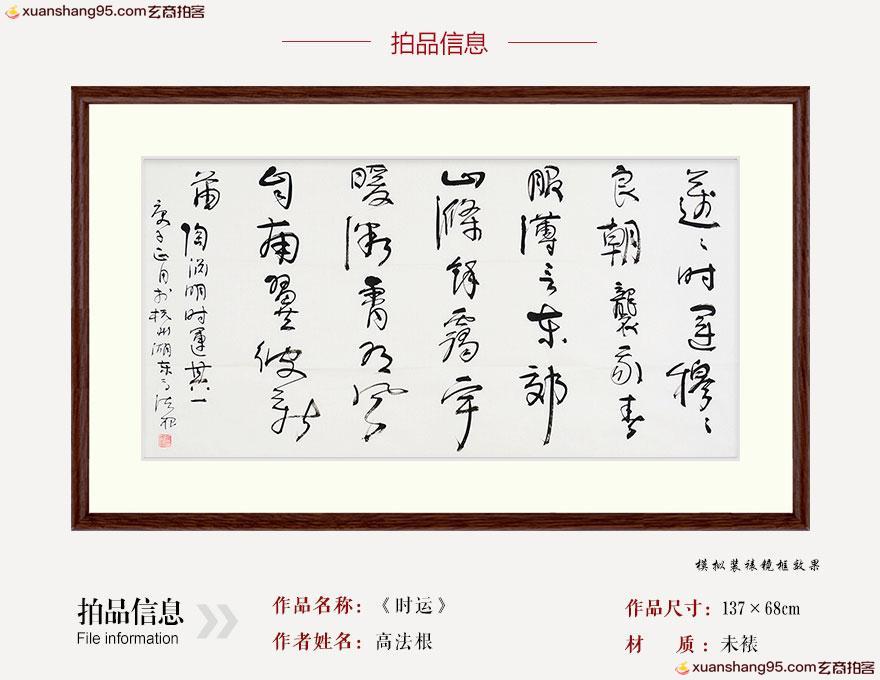 xuanshang95.com玄商拍客
拍品信息
邁〻时運穆〻
良朝襲我春
服薄言东郊
山滌餘靄宇
暧微霄有风
自南翼彼新
苗
陶渊明时運其一
庚子正月於杭州湖东高法根
模拟装裱镜框效果
拍品信息
File information
作品名称：《时运》
作品尺寸：137×68cm
作者姓名：高法根
材 质：未裱
xuanshang95.com玄商拍客